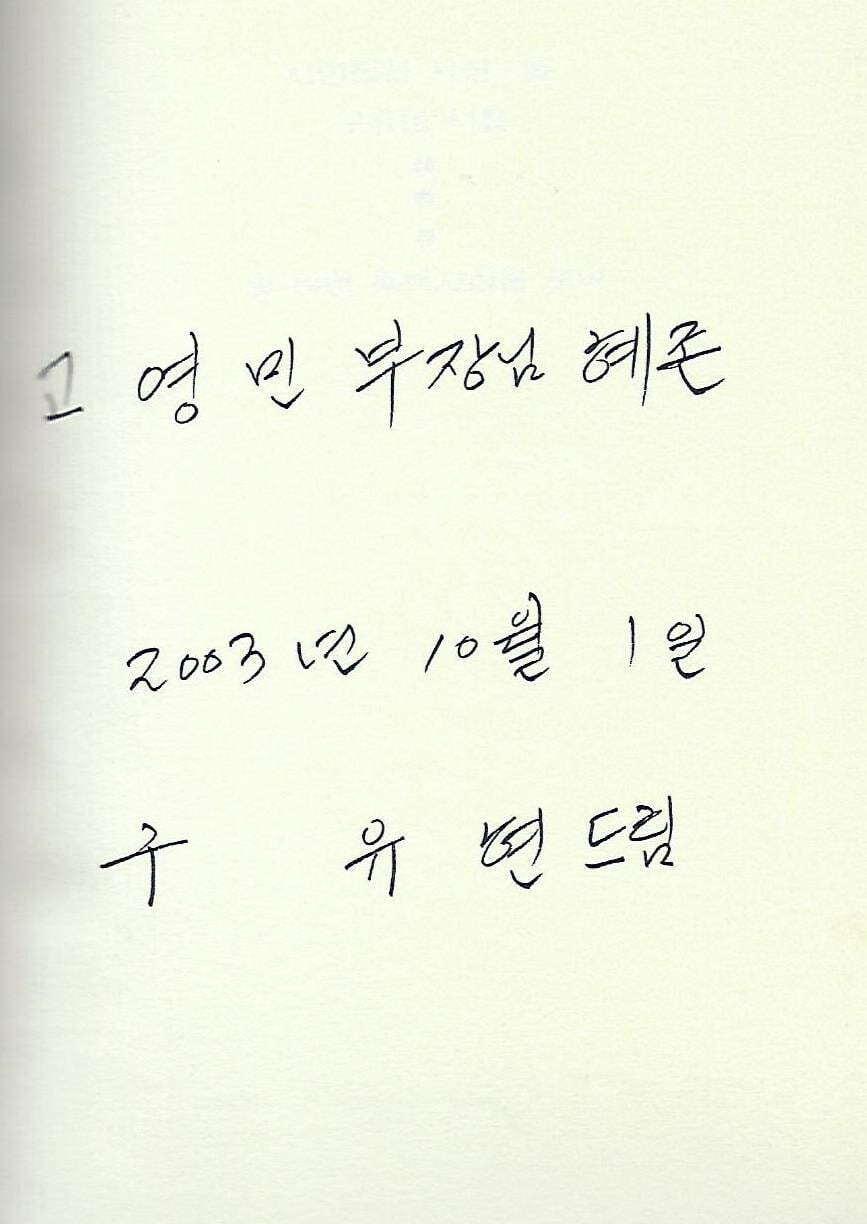 고 영 민 부장님 혜존
2003년 10월 1일
구 유 현 드림